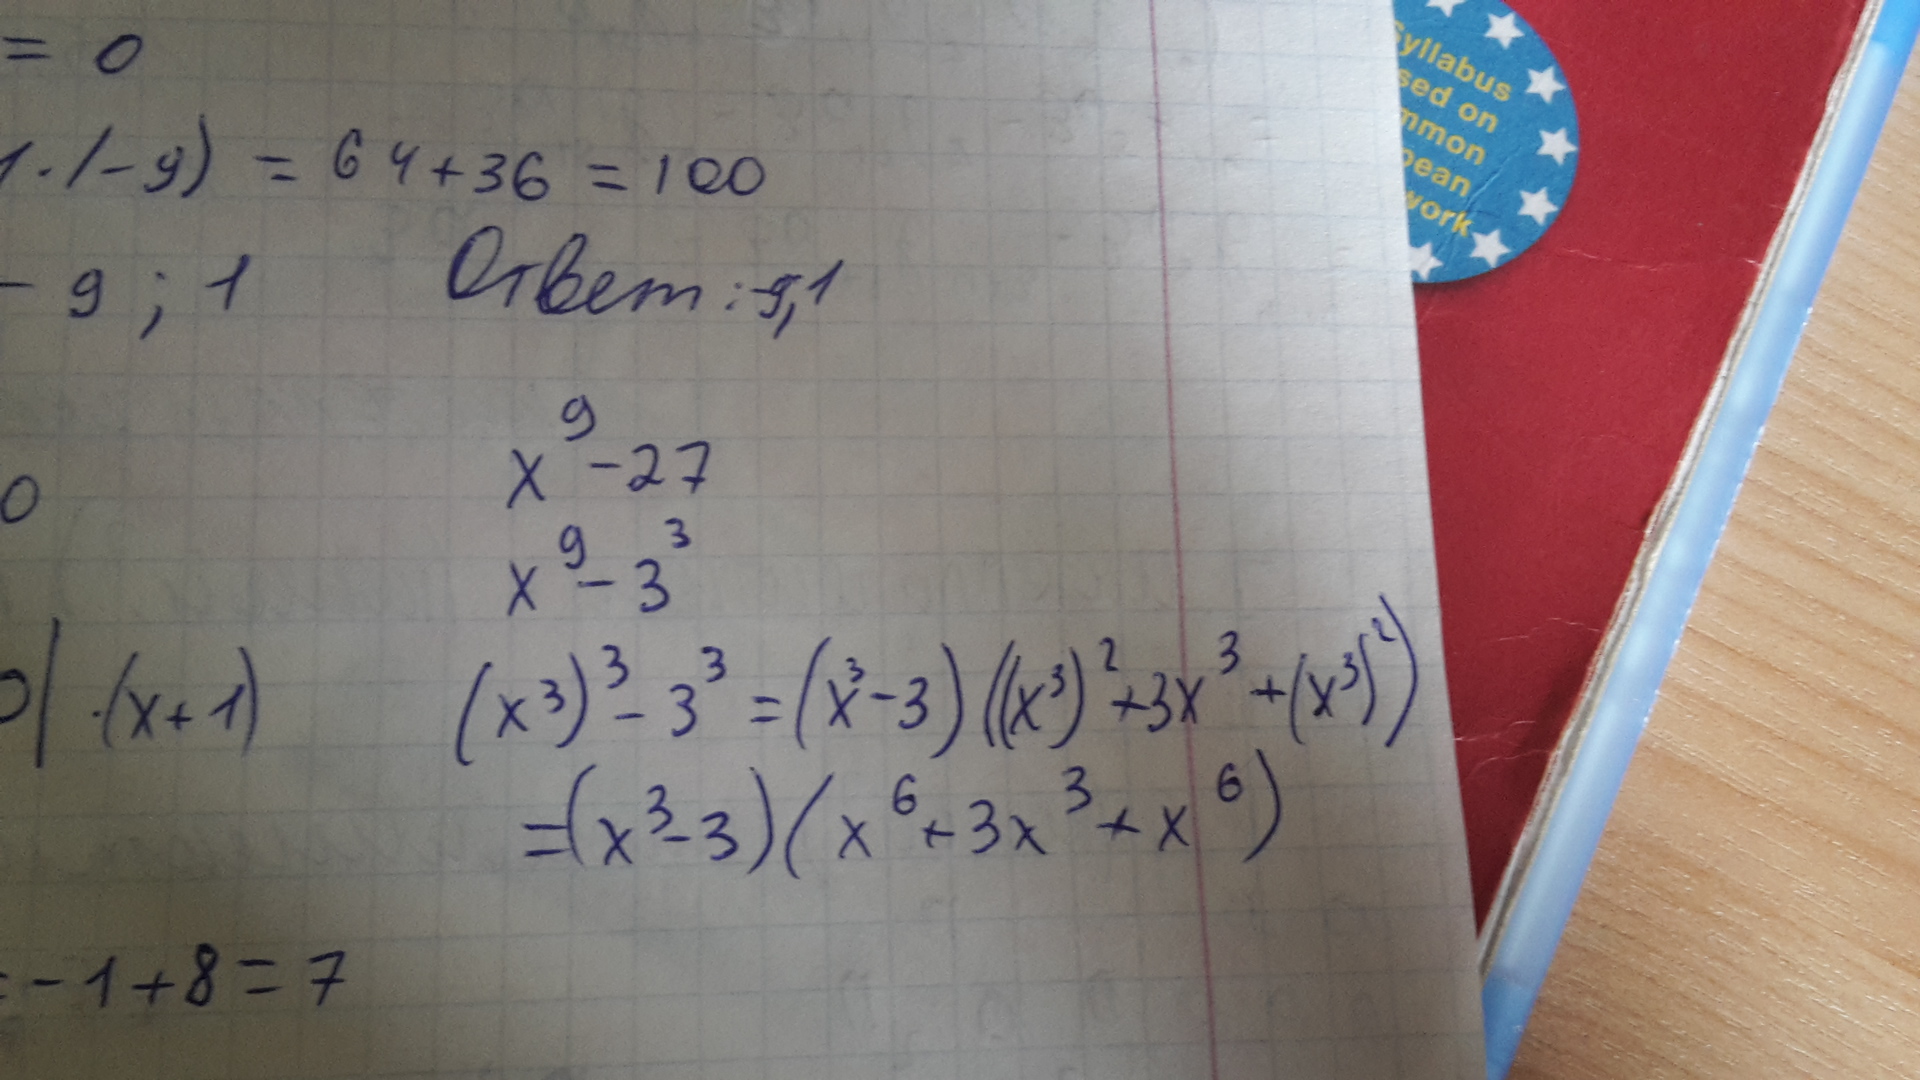 = 0
1·(-9) = 64+36 = 100
- 9 ; 1 Ответ: -9,1
x⁹ - 27
0
x⁹ - 3³
0| ·(x+1) (x³)³ - 3³ = (x³-3)((x³)²+3x³+(x³)²)
=(x³-3)(x⁶+3x³+x⁶)
= -1+8=7
syllabus
sed on
mmon
pean
work